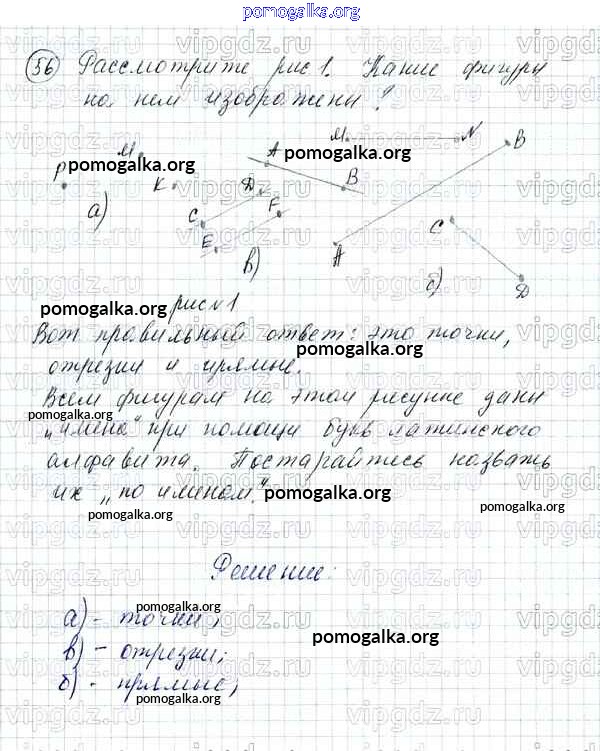 pomogalka.org
56 Рассмотрите рис 1. Какие фигуры
на нем изображены?
M N B
M A pomogalka.org
P pomogalka.org K D B
а) C F C
E в) A б) D
рис №1
pomogalka.org
Вот правильный ответ: это точки,
pomogalka.org
отрезки и прямые.
Всем фигурам на этом рисунке даны
pomogalka.org
„имена" при помощи букв латинского
алфавита. Постарайтесь назвать
их „по именам". pomogalka.org
pomogalka.org pomogalka.org
Решение:
pomogalka.org
а) - точки;
pomogalka.org
в) - отрезки;
pomogalka.org
б) - прямые;
pomogalka.org